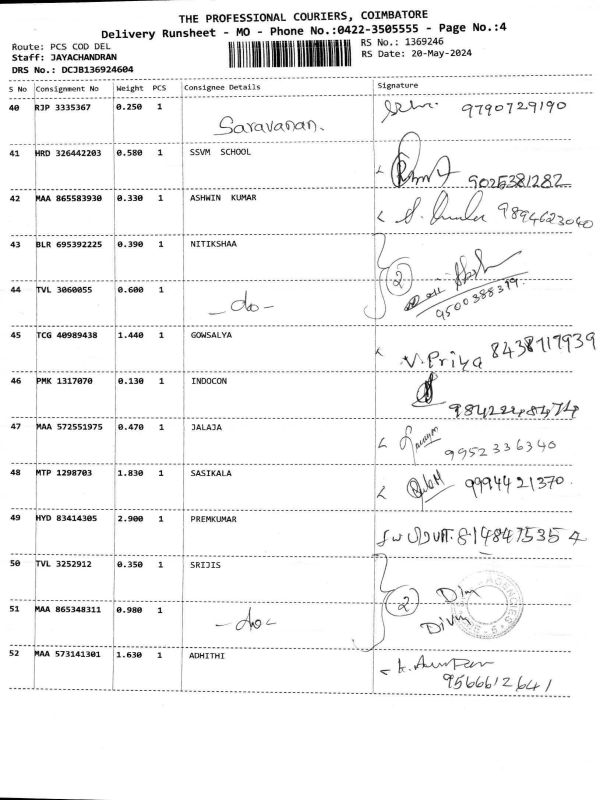 THE PROFESSIONAL COURIERS, COIMBATORE
Delivery Runsheet - MO - Phone No.:0422-3505555 - Page No.:4
Route: PCS COD DEL
Staff: JAYACHANDRAN
DRS No.: DCJB136924604
RS No.: 1369246
RS Date: 20-May-2024
S No Consignment No Weight PCS Consignee Details Signature
40 RJP 3335367 0.250 1 Saravanan. 9790729190
41 HRD 326442203 0.580 1 SSVM SCHOOL 9025381282
42 MAA 865583930 0.330 1 ASHWIN KUMAR 9894623040
43 BLR 695392225 0.390 1 NITIKSHAA 2
44 TVL 3060055 0.600 1 -do- 9500388399.
45 TCG 40989438 1.440 1 GOWSALYA V. Priya 8438717939
46 PMK 1317070 0.130 1 INDOCON
47 MAA 572551975 0.470 1 JALAJA 9952336340
48 MTP 1298703 1.830 1 SASIKALA 9994421370.
49 HYD 83414305 2.900 1 PREMKUMAR 8148475354
50 TVL 3252912 0.350 1 SRIJIS 2
51 MAA 865348311 0.980 1 -do-
52 MAA 573141301 1.630 1 ADHITHI 9566612641